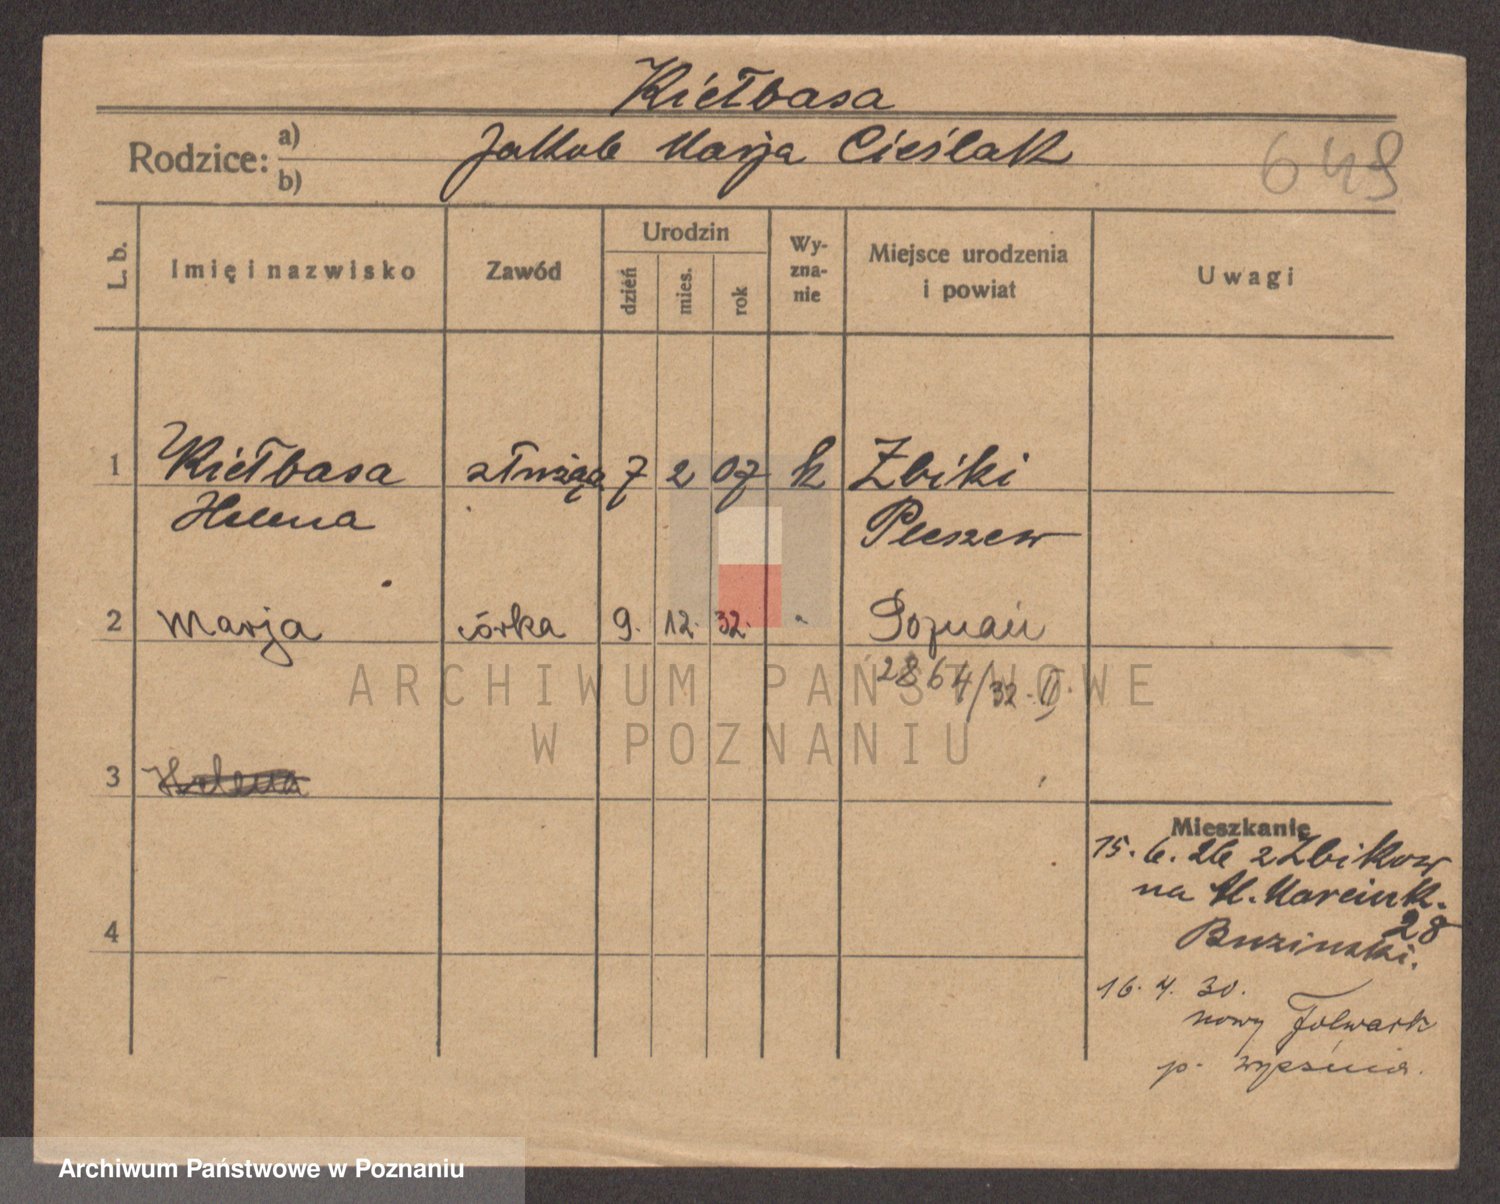 Kiełbasa
Rodzice: a) b) Jakób Marja Cieślak
649
L. b. Imię i nazwisko Zawód Urodzin dzień mies. rok Wy-zna-nie Miejsce urodzenia i powiat Uwagi
1 Kiełbasa służąca 7 2 07 k Zbiki
Helena Pleszew
2 Marja córka 9. 12. 32. " Poznań
2864/32. II.
ARCHIWUM PAŃSTWOWE
W POZNANIU
3 Helena
Mieszkanie
15. 6. 26 z Zbikow
na Al. Marcink.
28
4
16. 4. 30.
nowy Folwark
p.
Archiwum Państwowe w Poznaniu